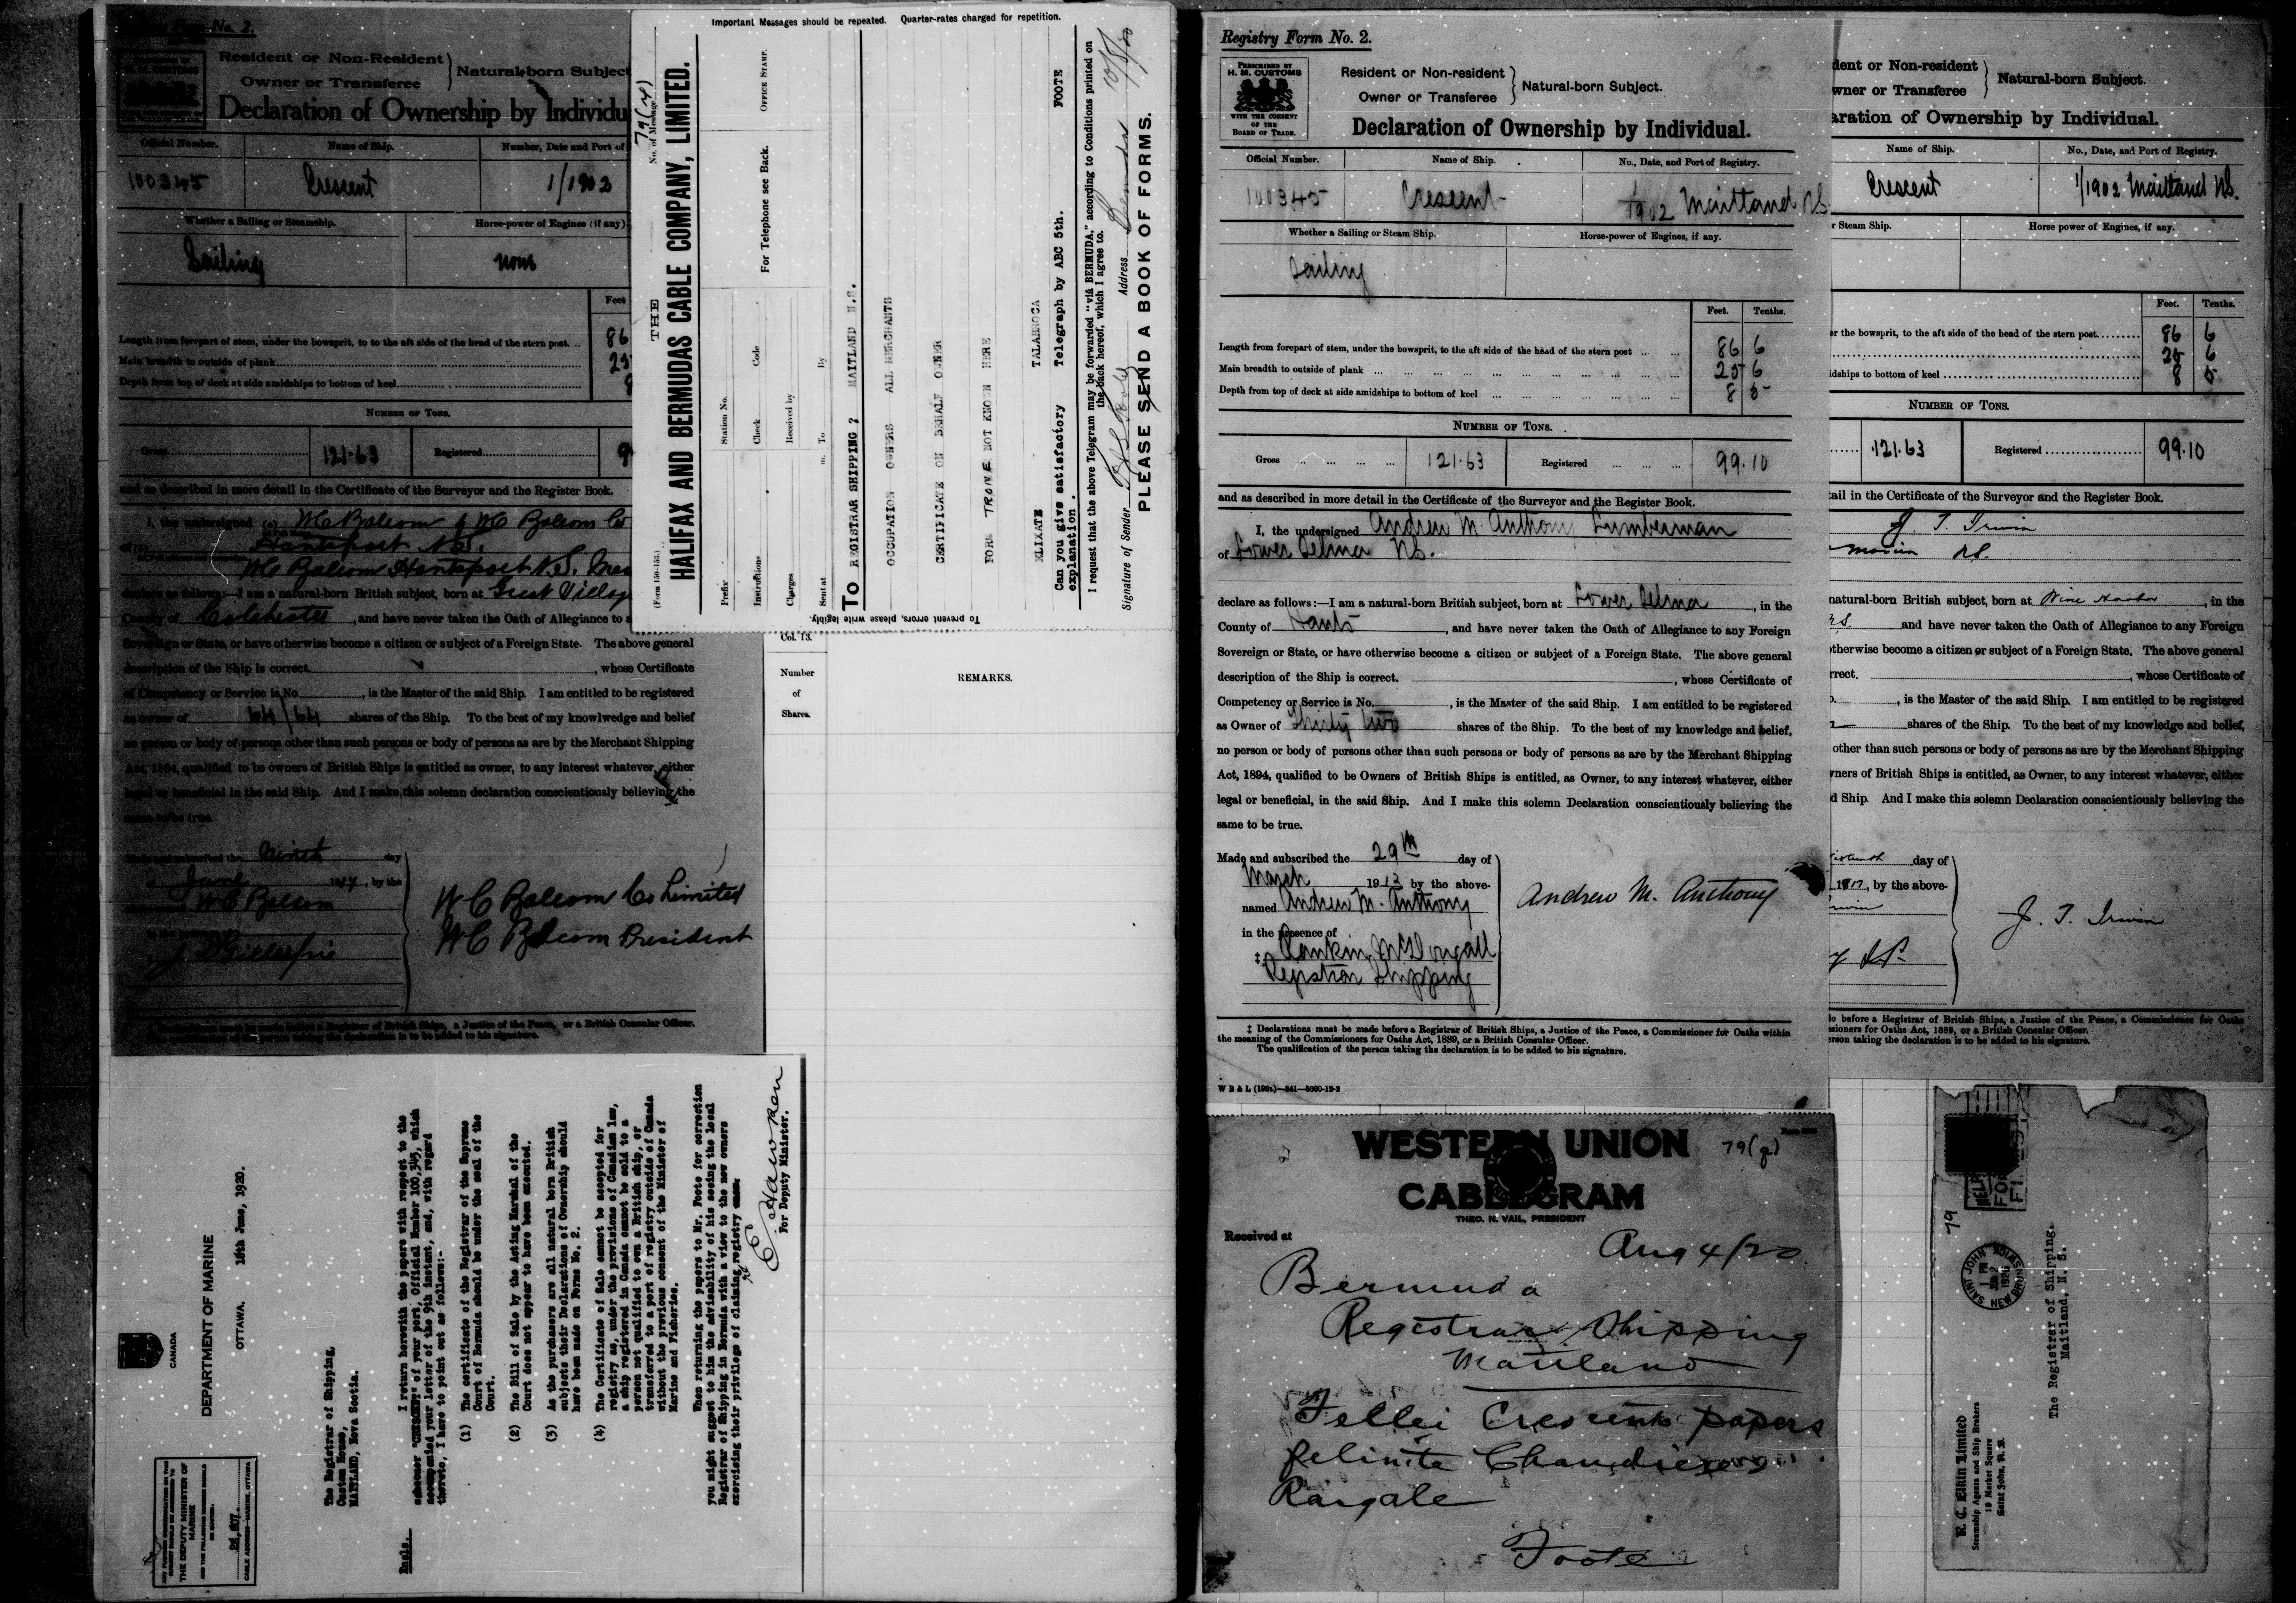 Registry Form No. 2.
Resident or Non-Resident
Owner or Transferee
Natural-born Subject
Declaration of Ownership by Individu
Official Number.
Name of Ship.
Number, Date and Port of
100345
Crescent
1/1902
Whether a Sailing or Steamship.
Horse-power of Engines (if any)
Sailing
none
Feet
Length from forepart of stem, under the bowsprit, to to the aft side of the head of the stern post. ..
86
Main breadth to outside of plank
25
Depth from top of deck at side amidships to bottom of keel
8
NUMBER OF TONS.
Gross
121.63
Registered
9
and as described in more detail in the Certificate of the Surveyor and the Register Book.
I, the undersigned (a) W C Balcom of W C Balcom Co
Hantsport N.S.
W C Balcom Hantsport N.S.
declare as follows:—I am a natural-born British subject, born at Great Villag
County of Colchester, and have never taken the Oath of Allegiance to a
Sovereign or State, or have otherwise become a citizen or subject of a Foreign State. The above general
description of the Ship is correct. , whose Certificate
of Competency or Service is No. , is the Master of the said Ship. I am entitled to be registered
as owner of 64/64 shares of the Ship. To the best of my knowlwedge and belief
no person or body of persons other than such persons or body of persons as are by the Merchant Shipping
Act, 1894, qualified to be owners of British Ships is entitled as owner, to any interest whatever, either
legal or beneficial in the said Ship. And I make this solemn declaration conscientiously believing the
same to be true.
Made and subscribed the Ninth day
of June 1917, by the
W C Balcom
W C Balcom Co Limited
W C Balcom President
a Registrar of British Ships, a Justice of the Peace, or a British Consular Officer.
person taking the declaration is to be added to his signature.
Important Messages should be repeated. Quarter-rates charged for repetition.
(Form 150-153.)
THE
No. of Message
79(r)
HALIFAX AND BERMUDAS CABLE COMPANY, LIMITED.
Prefix
Station No.
For Telephone see Back.
OFFICE STAMP.
Instructions
Check
Code
Charges
Received by
Sent at
m. To
By
To REGISTRAR SHIPPING ? MAITLAND N.S.
OCCUPATION OWNERS ALL MERCHANTS
CERTIFICATE ON BEHALF OWNER
FORM TRONE NOT KNOWN HERE
ELIXATE TALAHNOCA
Can you give satisfactory Telegraph by ABC 5th. FOOTE
explanation .
I request that the above Telegram may be forwarded "viâ BERMUDA," according to Conditions printed on
the back hereof, which I agree to.
Signature of Sender
Address Bermuda 10/8/20
PLEASE SEND A BOOK OF FORMS.
To prevent errors, please write legibly.
Col. 13.
Number
of
Shares.
REMARKS.
CANADA
DEPARTMENT OF MARINE
OTTAWA. 16th June, 1920.
THE DEPUTY MINISTER OF
MARINE
AND THE FOLLOWING NUMBER SHOULD
BE QUOTED:
26,807.
CABLE ADDRESS—MARINE, OTTAWA
The Registrar of Shipping,
Custom House,
MAITLAND, Nova Scotia.
I return herewith the papers with respect to the
schooner "CRESCENT" of your port, Official Number 100,345, which
accompanied your letter of the 9th instant, and, with regard
thereto, I have to point out as follows:-
(1) The certificate of the Registrar of the Supreme
Court of Bermuda should be under the seal of the
Court.
(2) The Bill of Sale by the Acting Marshal of the
Court does not appear to have been executed.
(3) As the purchasers are all natural born British
subjects their Declarations of Ownership should
have been made on Forms No. 2.
(4) The Certificate of Sale cannot be accepted for
registry as, under the provisions of Canadian law,
a ship registered in Canada cannot be sold to a
person not qualified to own a British ship, or
transferred to a port of registry outside of Canada
without the previous consent of the Minister of
Marine and Fisheries.
When returning the papers to Mr. Foote for correction
you might suggest to him the advisability of his seeing the local
Registrar of Shipping in Bermuda with a view to the new owners
exercising their privilege of claiming registry
Encls.
E Hawken
For Deputy Minister.
Registry Form No. 2.
PRESCRIBED BY
H. M. CUSTOMS
WITH THE CONSENT
OF THE
BOARD OF TRADE.
Resident or Non-resident
Owner or Transferee
Natural-born Subject.
Declaration of Ownership by Individual.
Official Number.
Name of Ship.
No., Date, and Port of Registry.
100345
Crescent
1/1902 Maitland NS
Whether a Sailing or Steam Ship.
Horse-power of Engines, if any.
Sailing
Feet. Tenths.
Length from forepart of stem, under the bowsprit, to the aft side of the head of the stern post ... ...
86 6
Main breadth to outside of plank
25 6
Depth from top of deck at side amidships to bottom of keel
8 5
NUMBER OF TONS.
Gross
121.63
Registered
99.10
and as described in more detail in the Certificate of the Surveyor and the Register Book.
I, the undersigned Andrew M. Anthony Lumberman
of Lower Selma N.S.
declare as follows:—I am a natural-born British subject, born at Lower Selma, in the
County of Hants, and have never taken the Oath of Allegiance to any Foreign
Sovereign or State, or have otherwise become a citizen or subject of a Foreign State. The above general
description of the Ship is correct. , whose Certificate of
Competency or Service is No. , is the Master of the said Ship. I am entitled to be registered
as Owner of Thirty two shares of the Ship. To the best of my knowledge and belief,
no person or body of persons other than such persons or body of persons as are by the Merchant Shipping
Act, 1894, qualified to be Owners of British Ships is entitled, as Owner, to any interest whatever, either
legal or beneficial, in the said Ship. And I make this solemn Declaration conscientiously believing the
same to be true.
Made and subscribed the 29th day of
March 1912 by the above-
named Andrew M. Anthony
in the presence of
‡ Rankin McDougall
Registrar Shipping
Andrew M. Anthony
‡ Declarations must be made before a Registrar of British Ships, a Justice of the Peace, a Commissioner for Oaths within
the meaning of the Commissioners for Oaths Act, 1889, or a British Consular Officer.
The qualification of the person taking the declaration is to be added to his signature.
dent or Non-resident
wner or Transferee
Natural-born Subject.
aration of Ownership by Individual.
Name of Ship.
No., Date, and Port of Registry.
Crescent
1/1902 Maitland NS.
r Steam Ship.
Horse power of Engines, if any.
Feet. Tenths.
er the bowsprit, to the aft side of the head of the stern post
86 6
25 6
idships to bottom of keel
8 5
NUMBER OF TONS.
121.63
Registered
99.10
tail in the Certificate of the Surveyor and the Register Book.
J. T. Irwin
N.S.
natural-born British subject, born at Wine Harbor, in the
N.S. and have never taken the Oath of Allegiance to any Foreign
otherwise become a citizen or subject of a Foreign State. The above general
rrect. , whose Certificate of
, is the Master of the said Ship. I am entitled to be registered
shares of the Ship. To the best of my knowledge and belief,
other than such persons or body of persons as are by the Merchant Shipping
wners of British Ships is entitled, as Owner, to any interest whatever, either
d Ship. And I make this solemn Declaration conscientiously believing the
day of
, by the above-
J. T. Irwin
J.P.
le before a Registrar of British Ships, a Justice of the Peace, a Commissioner for Oaths
ssioners for Oaths Act, 1889, or a British Consular Officer.
erson taking the declaration is to be added to his signature.
WESTERN UNION
79(g)
CABLEGRAM
THEO. N. VAIL, PRESIDENT
Received at
Aug 4/20
Bermuda
Registrar Shipping
Maitland
Fellei Crescent papers
felinite Chandieers
Rangale
Foote
79
SAINT JOHN
1 PM
JUN 2
1920
NEW BRUNSWICK
The Registrar of Shipping.
Maitland, N. S.
R. C. Elkin Limited
Steamship Agents and Ship Brokers
19 Market Square
Saint John, N. B.